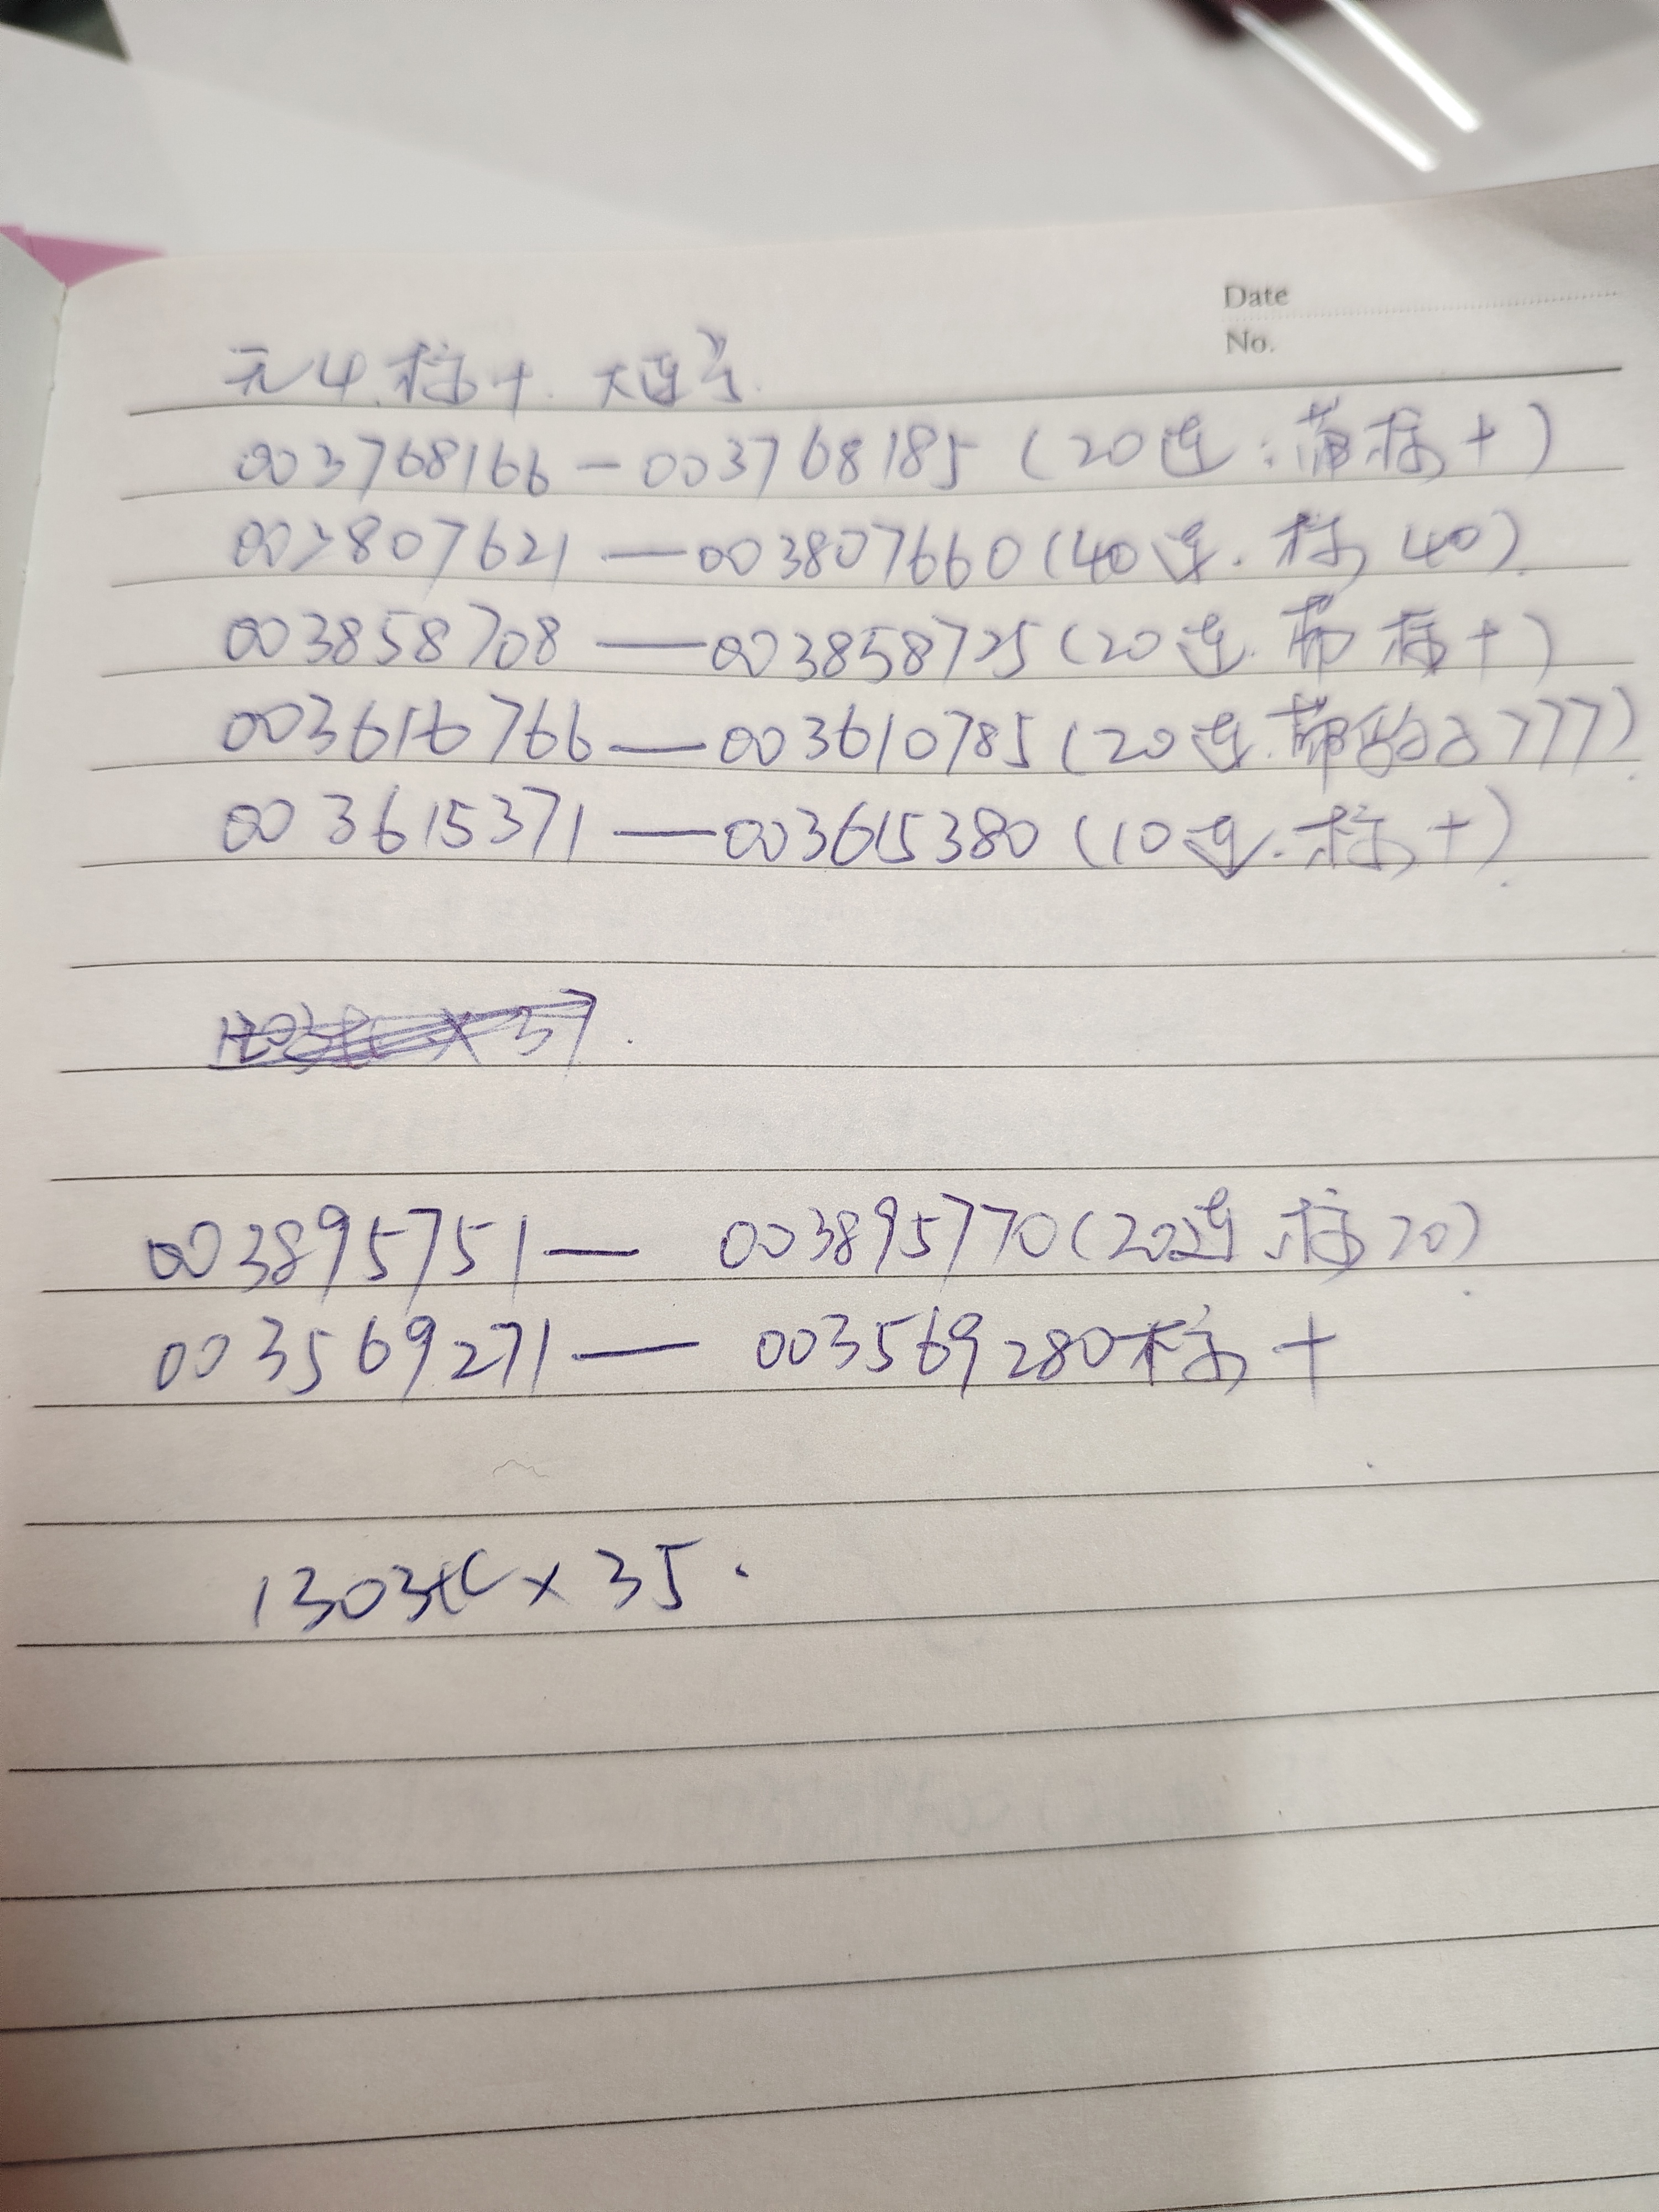 Date
No.
无4.标十.大连号.
003768166-003768185(20连:带标十)
003807621—003807660(40连.标40).
003858708—003858725(20连.带标十)
003616766—003610785(20连.带的777)
003615371—003615380(10连.标十)
×37.
003895751— 003895770(20连.标20)
003569271— 003569280标十
1303张×35.